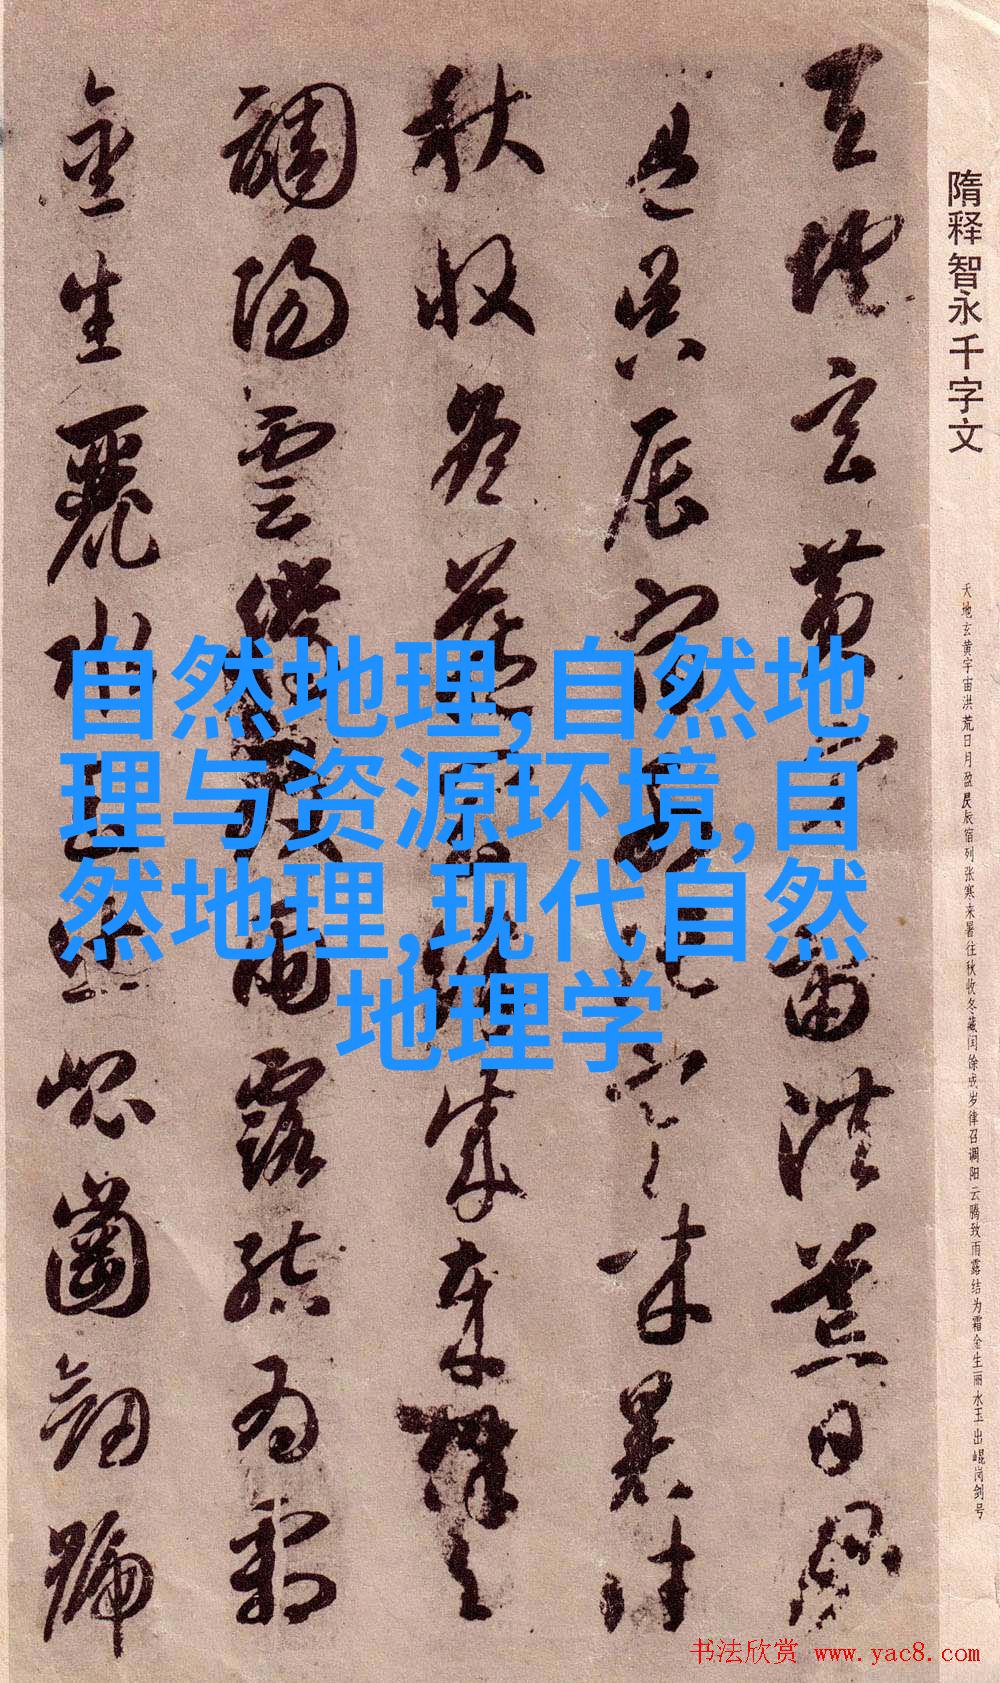 自然地理,自然地
理与资源环境,自
然地理,现代自然
地理学
隋释智永千字文
天地玄黄宇宙洪荒日月盈昃辰宿列张寒来暑往秋收冬藏闰馀成岁律召调阳云腾致雨露结为霜金生丽水玉出崐岗剑号
天地玄黄宇宙洪荒日月
盈昃辰宿列張寒来暑往
秋收冬蔵閏餘成歳律召
調陽雲騰致雨露結為霜
金生麗水玉出崐崗劍號
书法欣赏 www.yac8.com